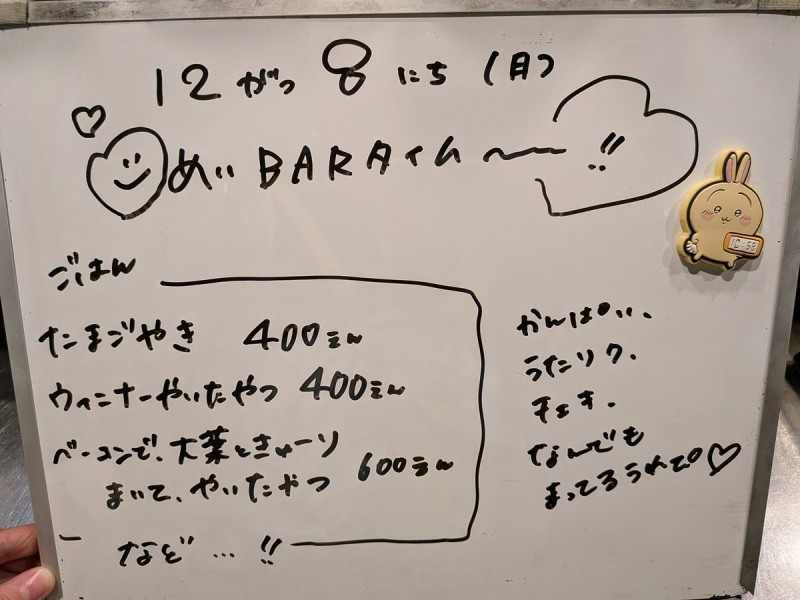 12がつ8にち(月)
めいBARタイム〜 !!
ごはん
たまごやき 400えん
ウィンナーやいたやつ 400えん
ベーコンで、大葉ときゅーり
まいて、やいたやつ 600えん
など…!!
かんぱい、
うたリク、
チェキ、
なんでも
まってるうれぴ♡
10:58